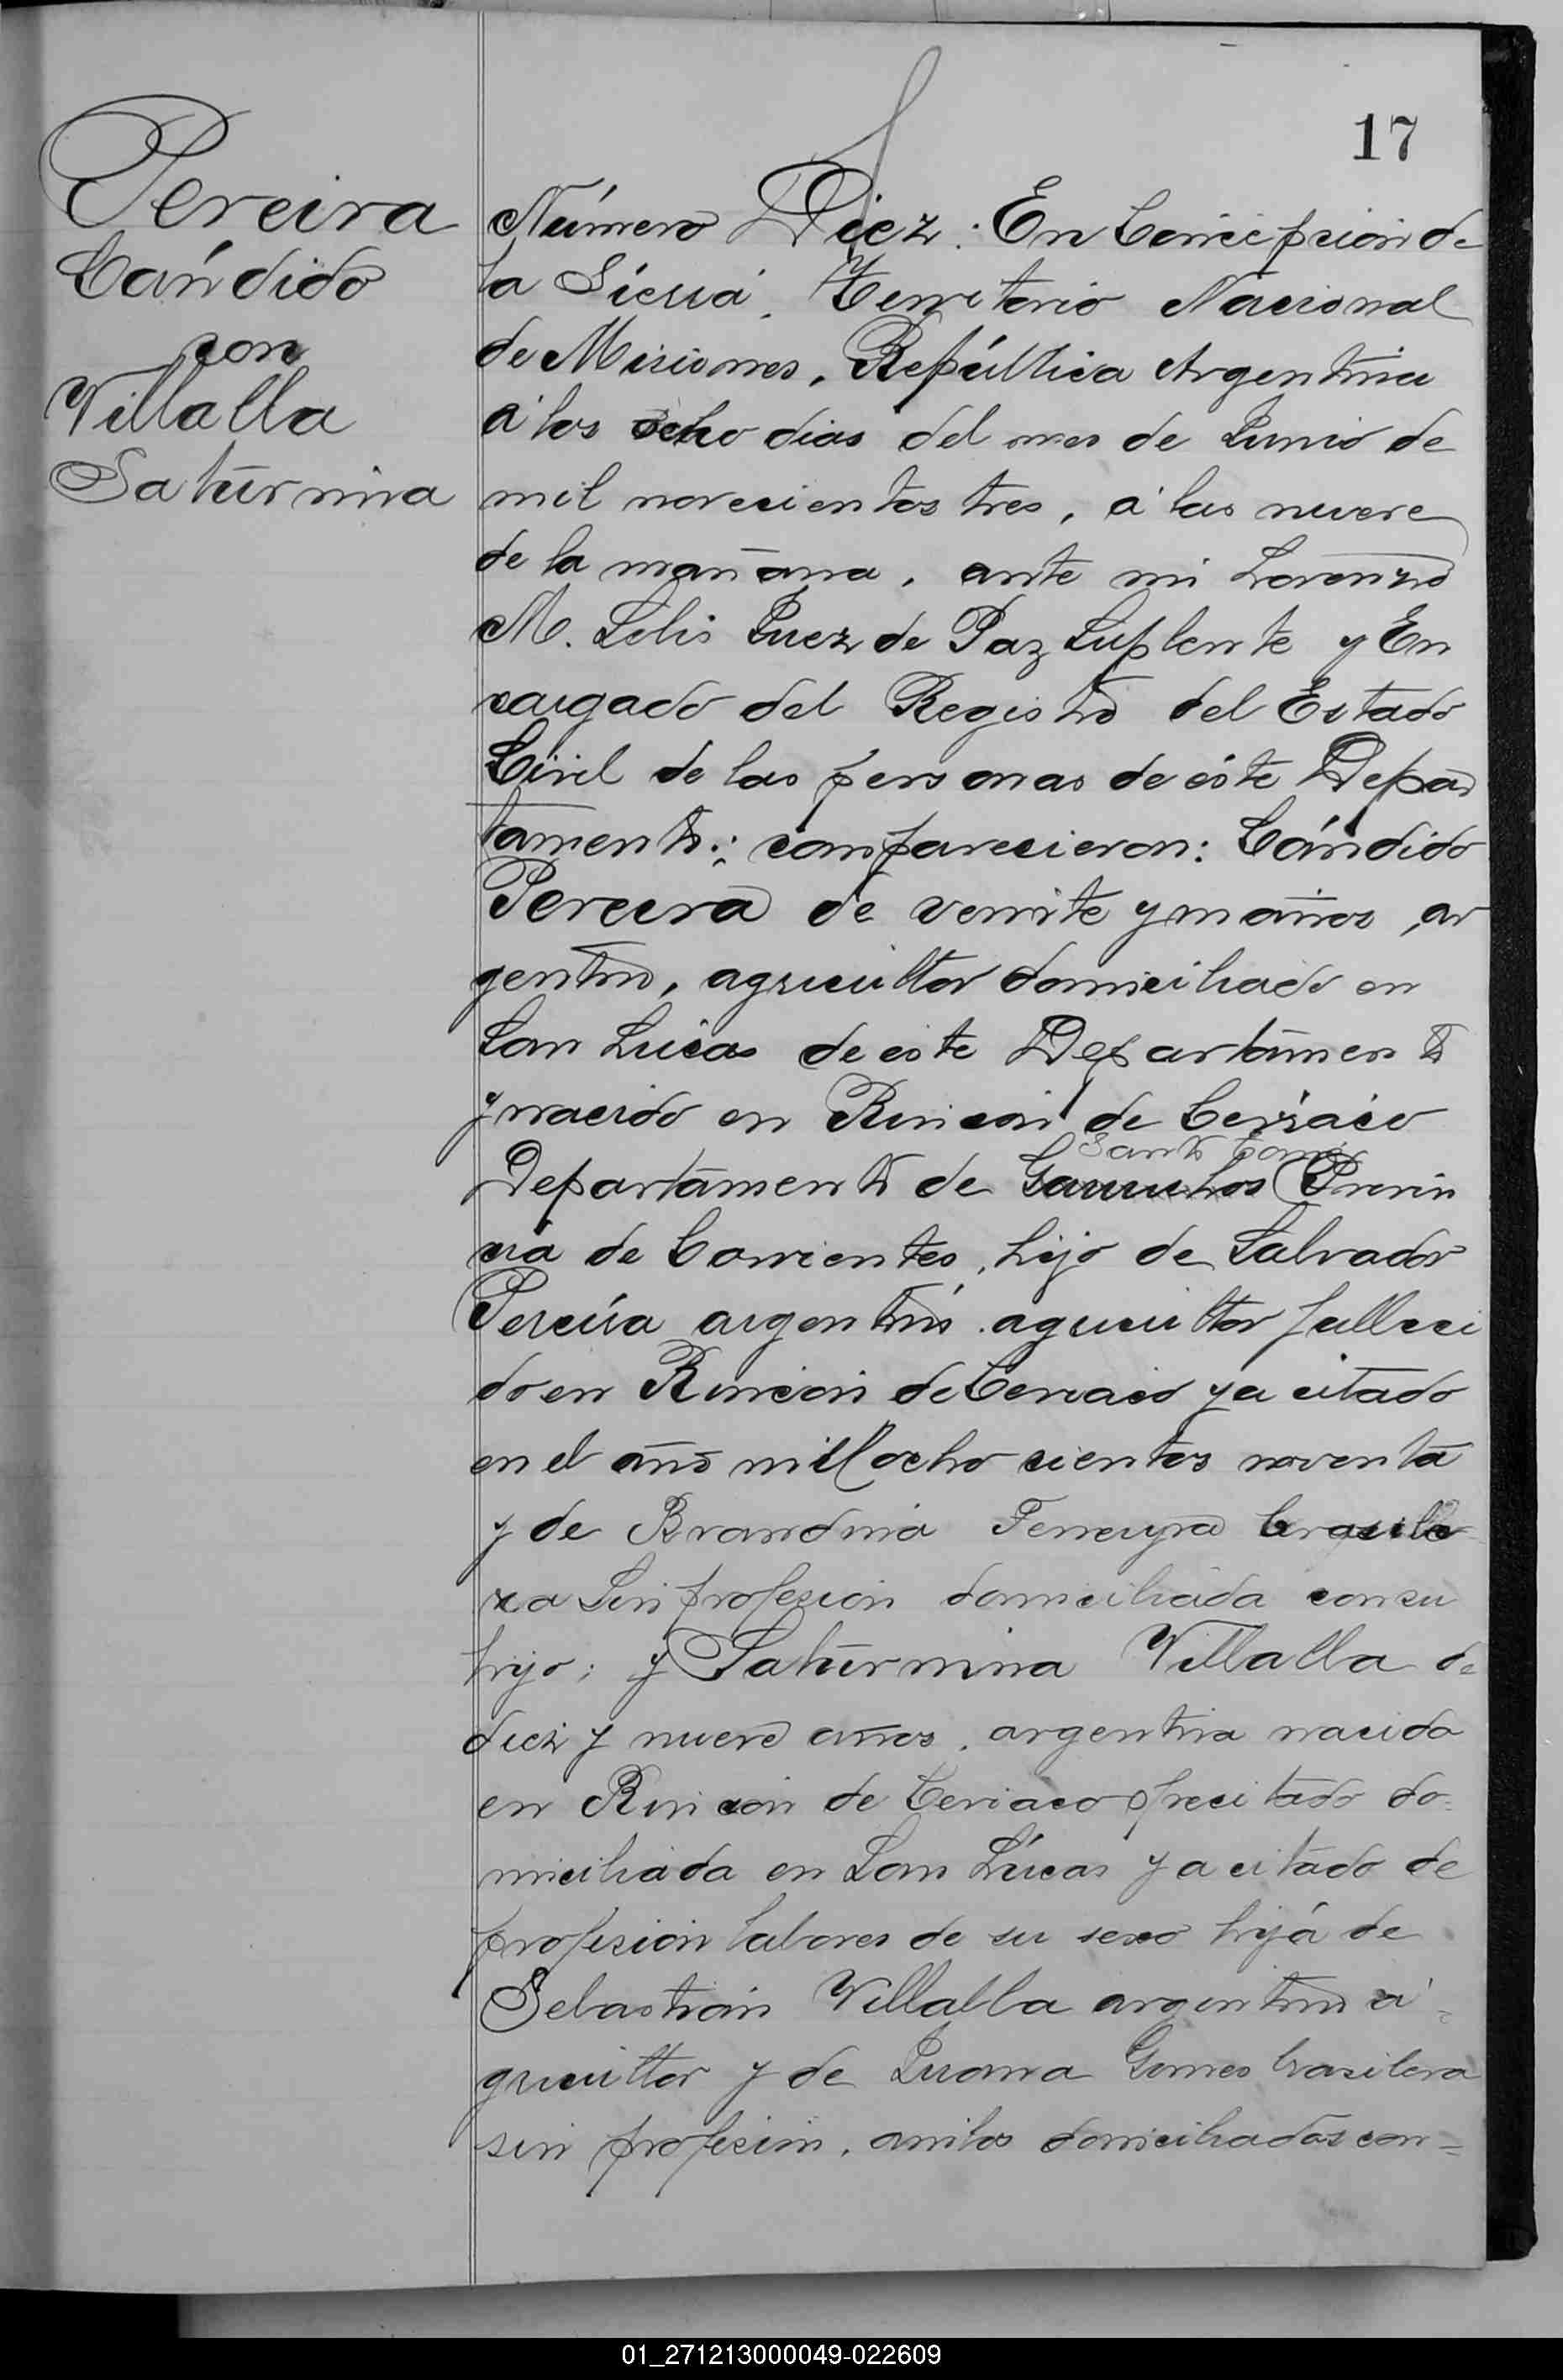 17
Pereira
Cándido
con
Villalba
Saturnina
Número Diez: En Concepcion de
la Sierra, Territorio Nacional
de Misiones, República Argentina
á los ocho dias del mes de Junio de
mil novecientos tres, á las nueve
de la mañana, ante mi Lorenzo
M. Lelis Juez de Paz Suplente y En
cargado del Registro del Estado
Civil de las personas de éste Depar
tamento; comparecieron: Cándido
Pereira de veinte y un años, ar
gentino, agricultor domiciliado en
San Lucas de este Departamento
y nacido en Rincon de
Santo Tomé
Departamento de Garruchos Provin
cia de Corrientes, hijo de Salvador
Pereira argentino agricultor falleci
do en Rincon de ya citado
en el año mil ocho cientos noventa
y de Brandina Ferreyra brasile
ra Sin profesion domiciliada con su
hijo; y Saturnina Villalba de
diez y nueve años, argentina nacida
en Rincon de precitado do-
miciliada en San Lúcas ya citado de
profesion labores de su sexo hija de
Sebastian Villalba argentino a-
gricultor y de Juana Gomes brasilera
sin profesion, ambos domiciliados con=
01_271213000049-022609